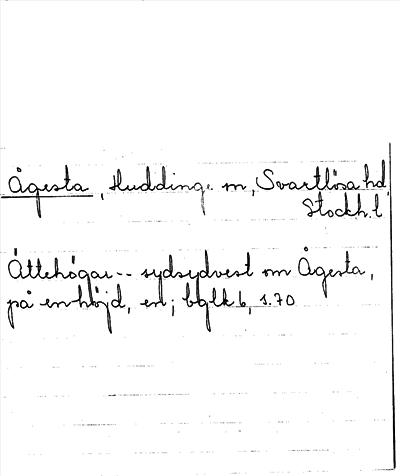 Ågesta, Hudding. m, Svartlösa hd,
Stockh. l
Ättehögar -- sydsydvest om Ågesta,
på en höjd, en; bglk 6, s. 70